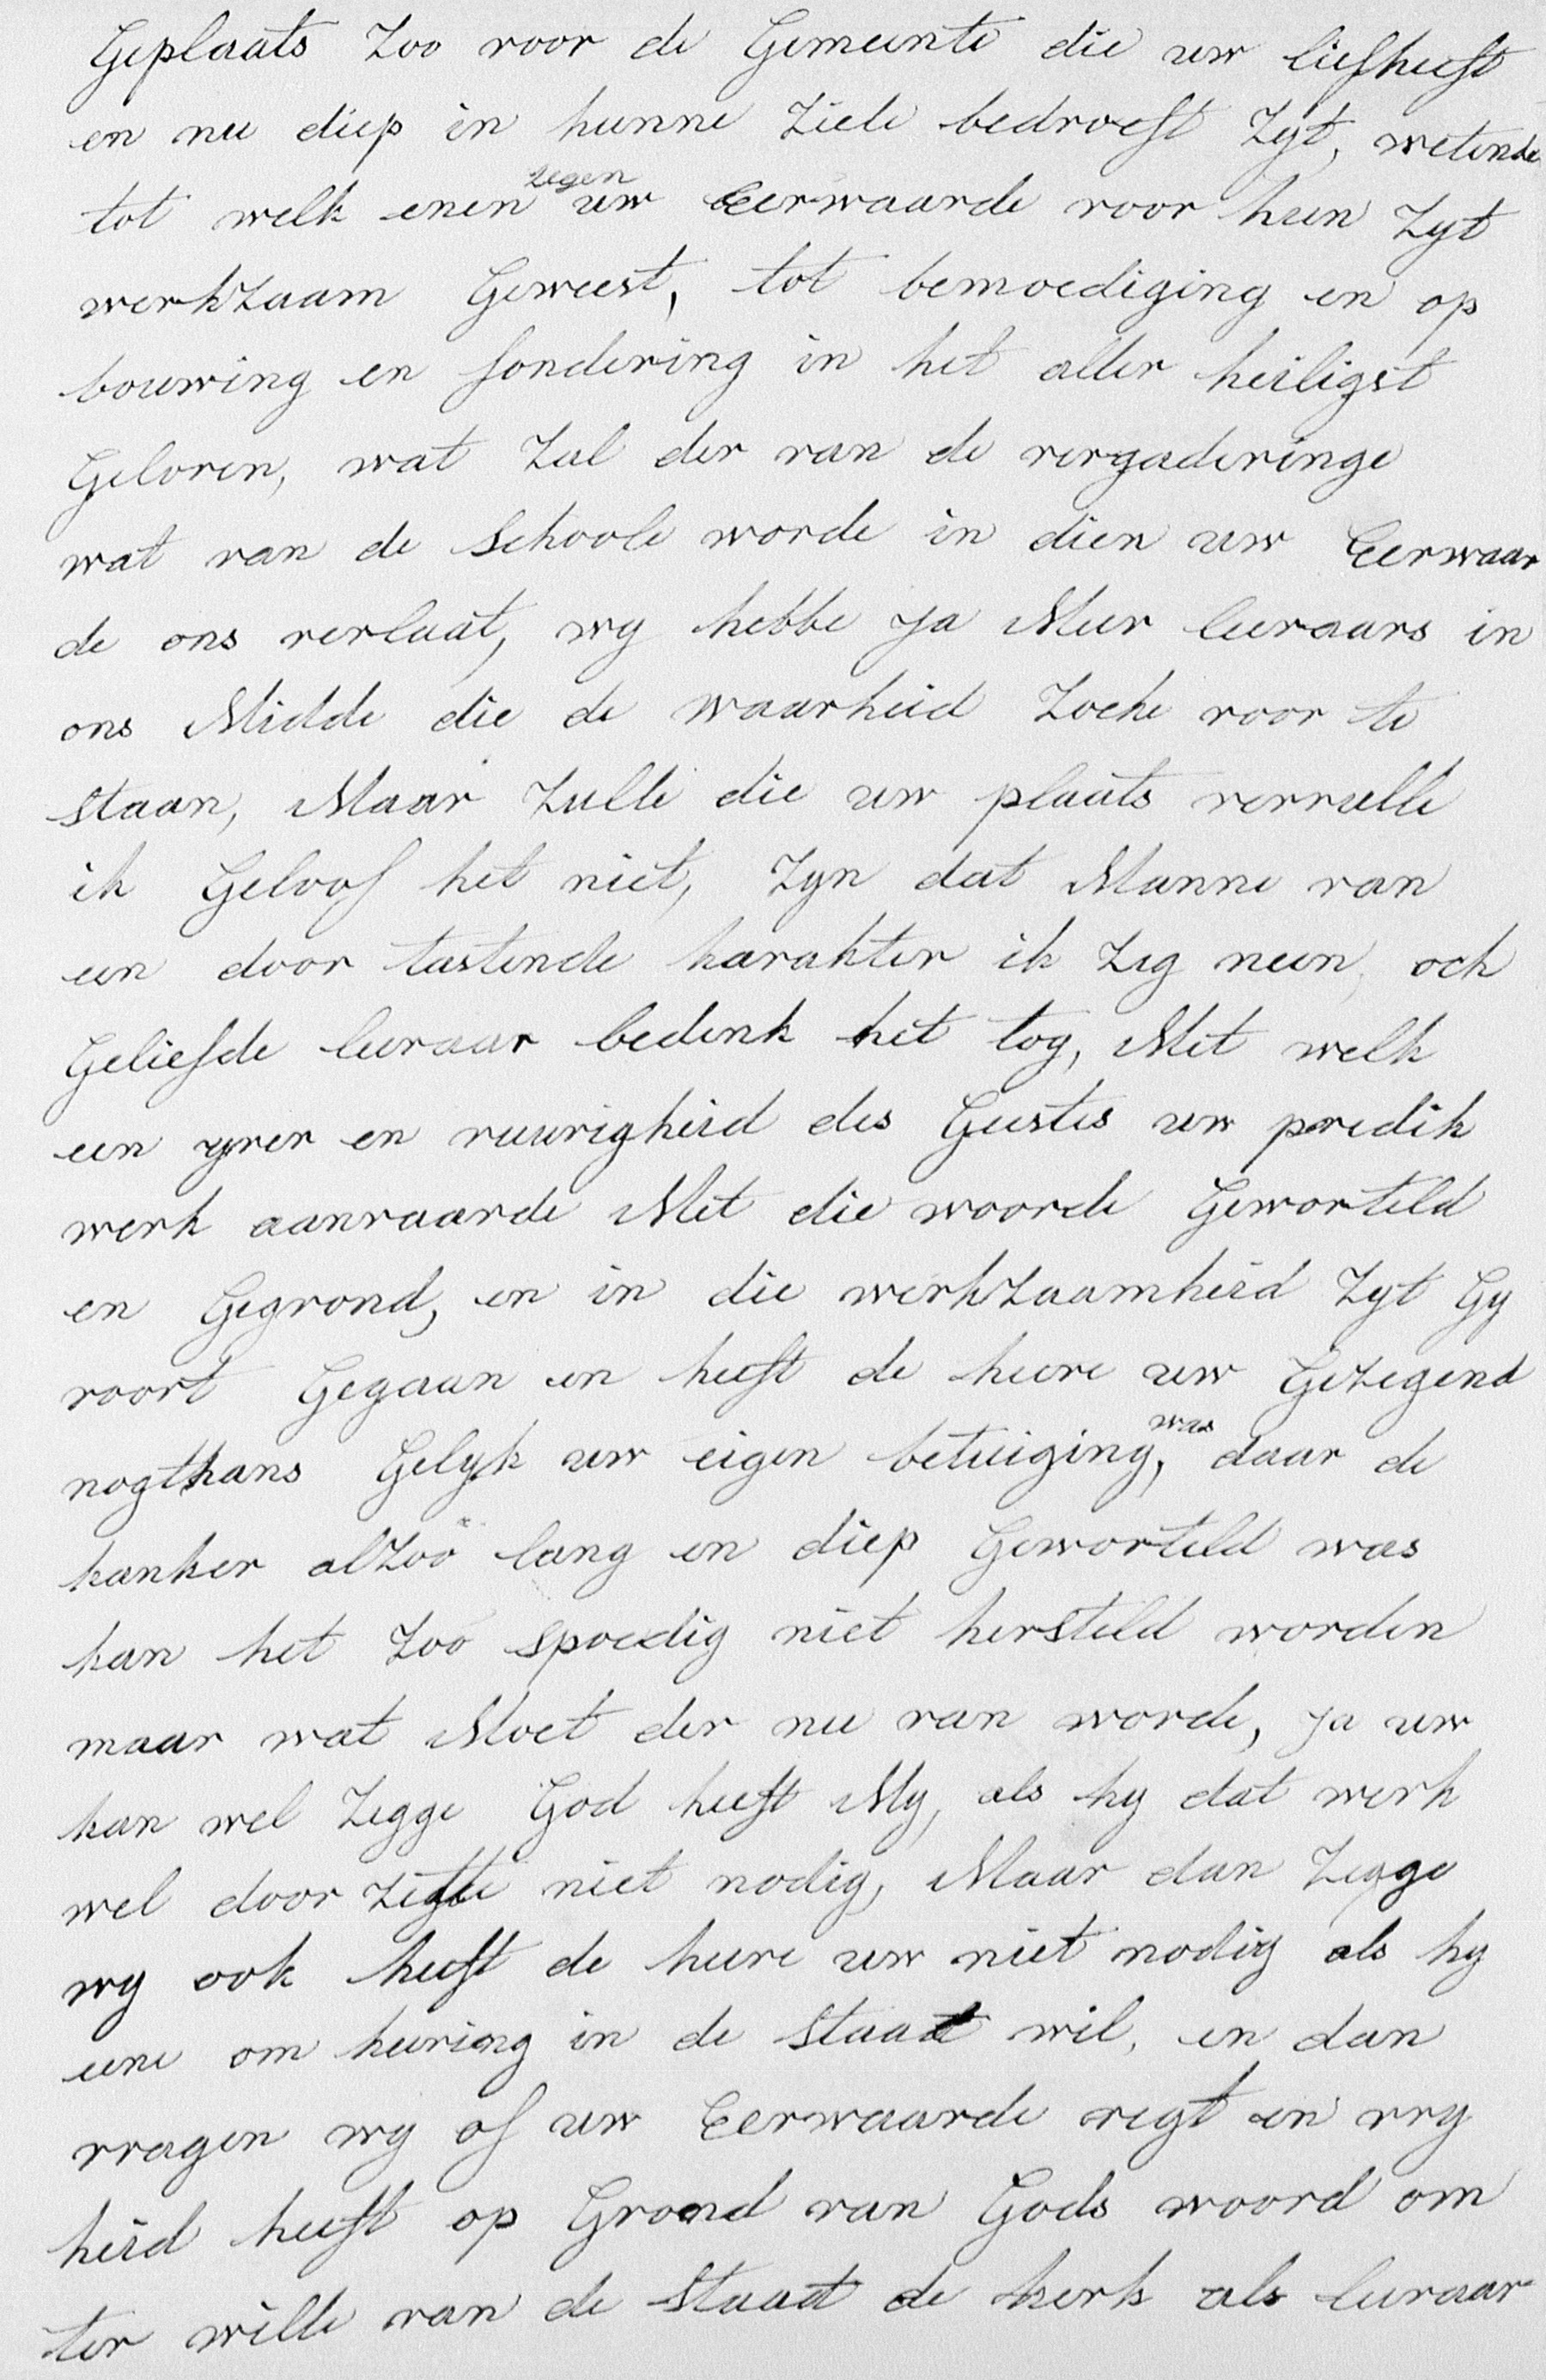 Geplaats Zoo voor de Gemeente die uw liefheeft
en nu diep in hunne Ziele bedroeft Zyt, wetende
tot welk enen zegen uw Eerwaarde voor hun Zyt
werkZaam Geweest, tot bemoediging en op
bouwing en fondering in het aller heiligst
Geloven, wat Zal der van de vergaderinge
wat van de Schoole worde in dien uw Eerwaar
de ons verlaat, wy hebbe ja Meer leeraars in
ons Midde die de waarheid Zoeke voor te
staan, Maar Zulle die uw plaats vervulle
ik Geloof het niet, Zyn dat Manne van
een door tastende karakter ik Zeg neen, och
Geliefde leeraar bedenk het tog, Met welk
een yver en vuurigheid des Geestes uw predik
werk aanvaarde Met die woorde Geworteld
en Gegrond, en in die werkZaamheid Zyt Gy
voort Gegaan en heeft de heere uw GeZegend
nogthans Gelyk uw eigen betuiging, was daar de
kanker alZoo lang en diep Geworteld was
kan het Zoo spoedig niet hersteld worden
maar wat Moet der nu van worde, ja uw
kan wel Zegge God heeft My, als hy dat werk
wel door Zette niet nodig, Maar dan Zegge
wy ook heeft de heere uw niet nodig als hy
eene om keering in de Staat wil, en dan
vragen wy of uw Eerwaarde regt en vry
heid heeft op Grond van Gods woord om
ter wille van de Staat de kerk als leeraar